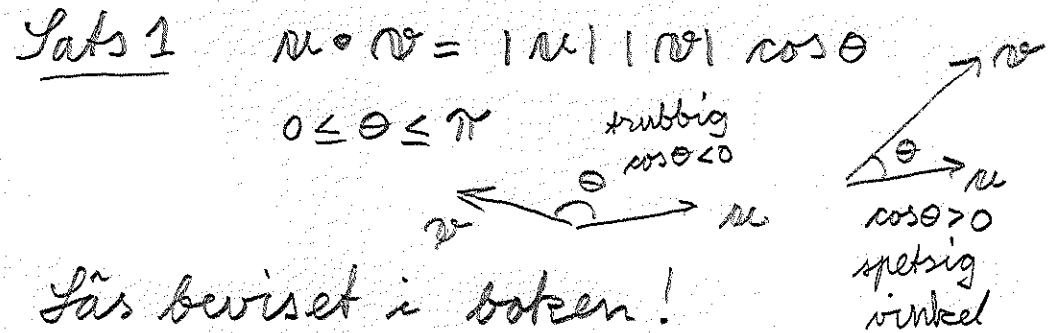 Sats 1 u • v = |u| |v| cos θ
0 ≤ θ ≤ π
trubbig
cos θ < 0
θ
v
u
v
θ
u
cos θ > 0
spetsig
vinkel
Läs beviset i boken!